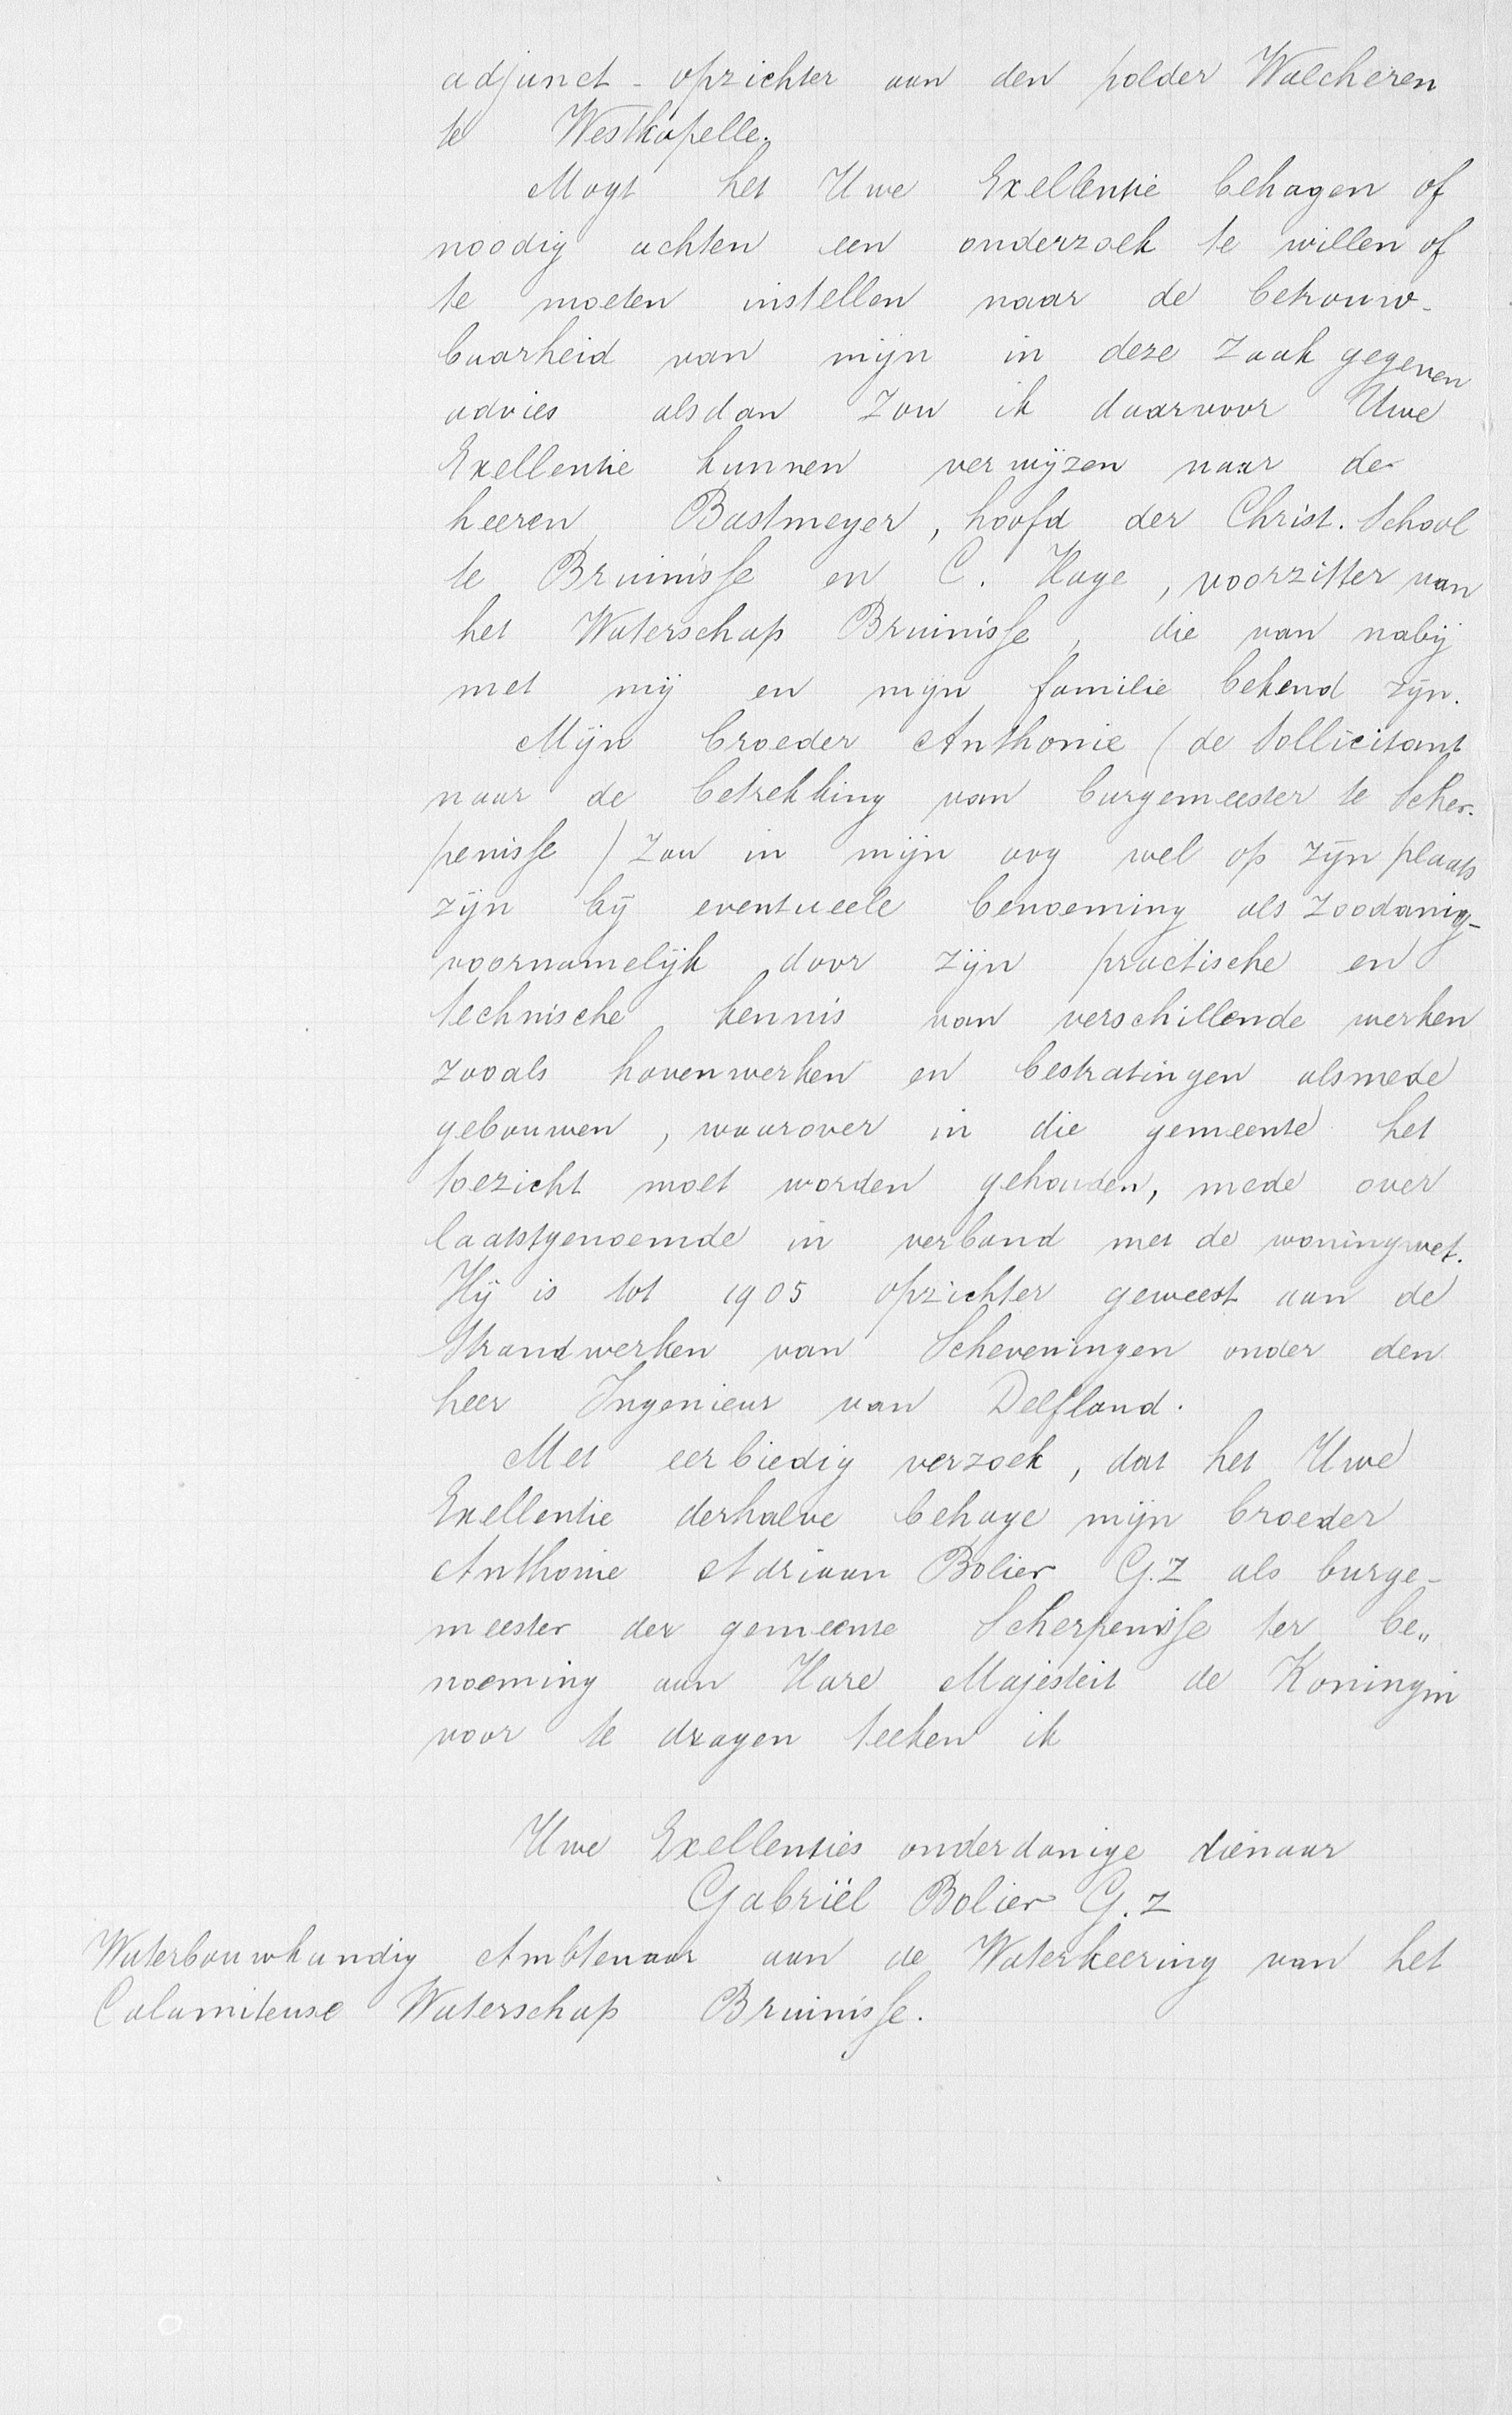 adjunct-opzichter aan den polder Walcheren
te Westkapelle.
Mogt het Uwe Exellentie behagen of
noodig achten een onderzoek te willen of
te moeten instellen naar de betrouw-
baarheid van mijn in deze zaak gegeven
advies alsdan zou ik daarvoor Uwe
Exellentie kunnen verwijzen naar de
heeren Bastmeyer, hoofd der Christ. School
te Bruinisse en C. Hage, voorzitter van
het Waterschap Bruinisse, die van nabij
met mij en mijn familie bekend zijn.
Mijn broeder Anthonie (de Sollicitant
naar de betrekking van burgemeester te Scher-
penisse) zou in mijn oog wel op zijn plaats
zijn bij eventueele benoeming als zoodanig-
voornamelijk door zijn practische en
technische kennis van verschillende werken
zooals havenwerken en bestratingen alsmede
gebouwen, waarover in die gemeente het
toezicht moet worden gehouden, mede over
laatstgenoemde in verband met de woningwet.
Hij is tot 1905 opzichter geweest aan de
Strandwerken van Scheveningen onder den
heer Ingenieur van Delfland.
Met eerbiedig verzoek, dat het Uwe
Exellentie derhalve behage mijn broeder
Anthonie Adriaan Bolier G.Z als burge-
meester der gemeente Scherpenisse ter be„
noeming aan Hare Majesteit de Koningin
voor te dragen teeken ik
Uwe Exellenties onderdanige dienaar
Gabriël Bolier G.Z
Waterbouwkundig Ambtenaar aan de Waterkeering van het
Calamiteuse Waterschap Bruinisse.